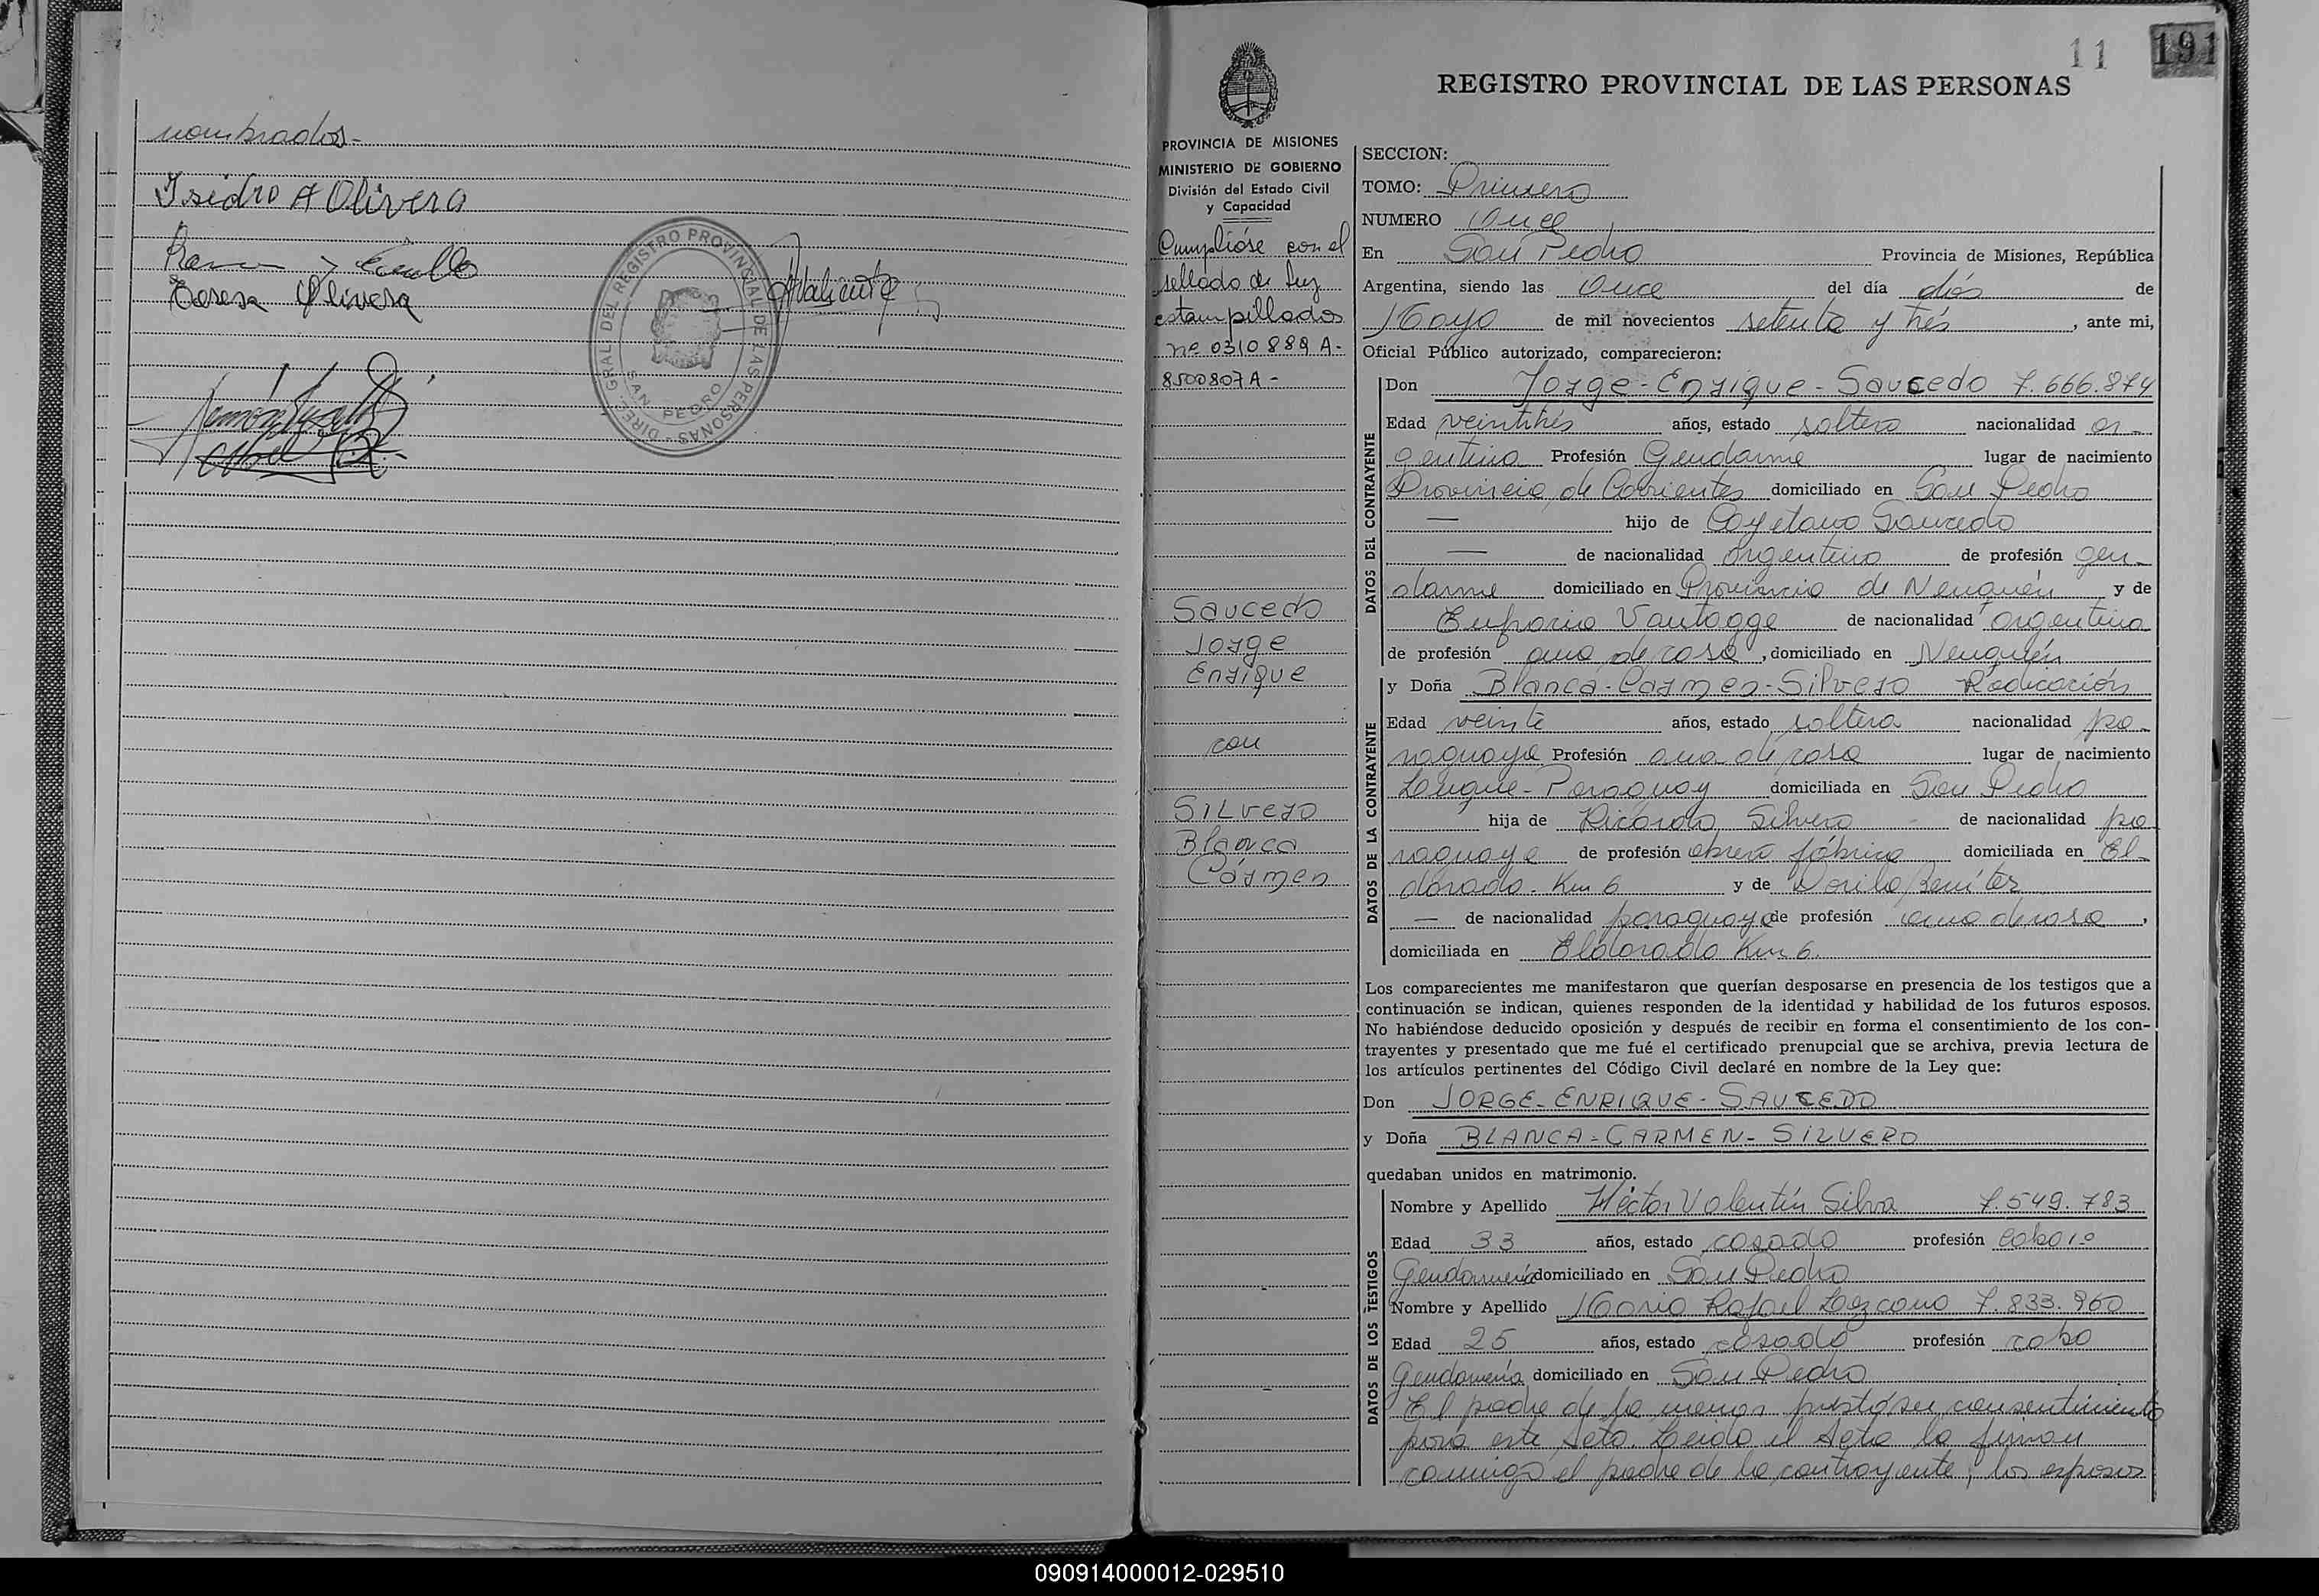 nombrados-
Isidro A Olivera
Teresa Olivera
DIREC. GRAL DEL REGISTRO PROVINCIAL DE LAS PERSONAS
SAN PEDRO
11 191
REGISTRO PROVINCIAL DE LAS PERSONAS
PROVINCIA DE MISIONES
MINISTERIO DE GOBIERNO
División del Estado Civil
y Capacidad
Cumplióse con el
sellado de ley
estampillados
nº 0310889 A-
8500807A-
Saucedo
Jorge
Enrique
con
SILVERO
Blanca
Cármen
SECCION:
TOMO: Primero
NUMERO Once
En San Pedro Provincia de Misiones, República
Argentina, siendo las Once del día dós de
Mayo de mil novecientos setenta y trés, ante mi,
Oficial Público autorizado, comparecieron:
DATOS DEL CONTRAYENTE
Don Jorge-Enrique-Saucedo 7.666.874
Edad veintitrés años, estado soltero nacionalidad ar-
gentina Profesión Gendarme lugar de nacimiento
Provincia de Corrientes domiciliado en San Pedro
— hijo de Cayetano Saucedo
— de nacionalidad argentina de profesión gen-
darme domiciliado en Provincia de Neuquén y de
Eufracia Vantagge de nacionalidad argentina
de profesión ama de casa, domiciliado en Neuquén
DATOS DE LA CONTRAYENTE
y Doña Blanca-Carmen-Silvero Radicación
Edad veinte años, estado soltera nacionalidad pa-
raguaya Profesión ama de casa lugar de nacimiento
Paraguay domiciliada en San Pedro
hija de Ricardo Silvero - de nacionalidad pa-
raguaya de profesión obrero fábrica domiciliada en El-
dorado-Km 6 y de Dorila Benítez
— de nacionalidad paraguaya de profesión ama de casa,
domiciliada en Eldorado Km 6.
Los comparecientes me manifestaron que querían desposarse en presencia de los testigos que a
continuación se indican, quienes responden de la identidad y habilidad de los futuros esposos.
No habiéndose deducido oposición y después de recibir en forma el consentimiento de los con-
trayentes y presentado que me fué el certificado prenupcial que se archiva, previa lectura de
los artículos pertinentes del Código Civil declaré en nombre de la Ley que:
Don JORGE-ENRIQUE-SAUCEDO
y Doña BLANCA-CARMEN-SILVERO
quedaban unidos en matrimonio.
DATOS DE LOS TESTIGOS
Nombre y Apellido Héctor Valentín Silva 7.549.783
Edad 33 años, estado casado profesión Cabo 1º
Gendarmería domiciliado en San Pedro
Nombre y Apellido Mario Rafael Lezcano 7.833.960
Edad 25 años, estado casado profesión cabo
Gendarmería domiciliado en San Pedro
El padre de la menor prestó su consentimiento
para este Acto. Leída el Acta la firman
conmigo el padre de la contrayente, los esposos
090914000012-029510